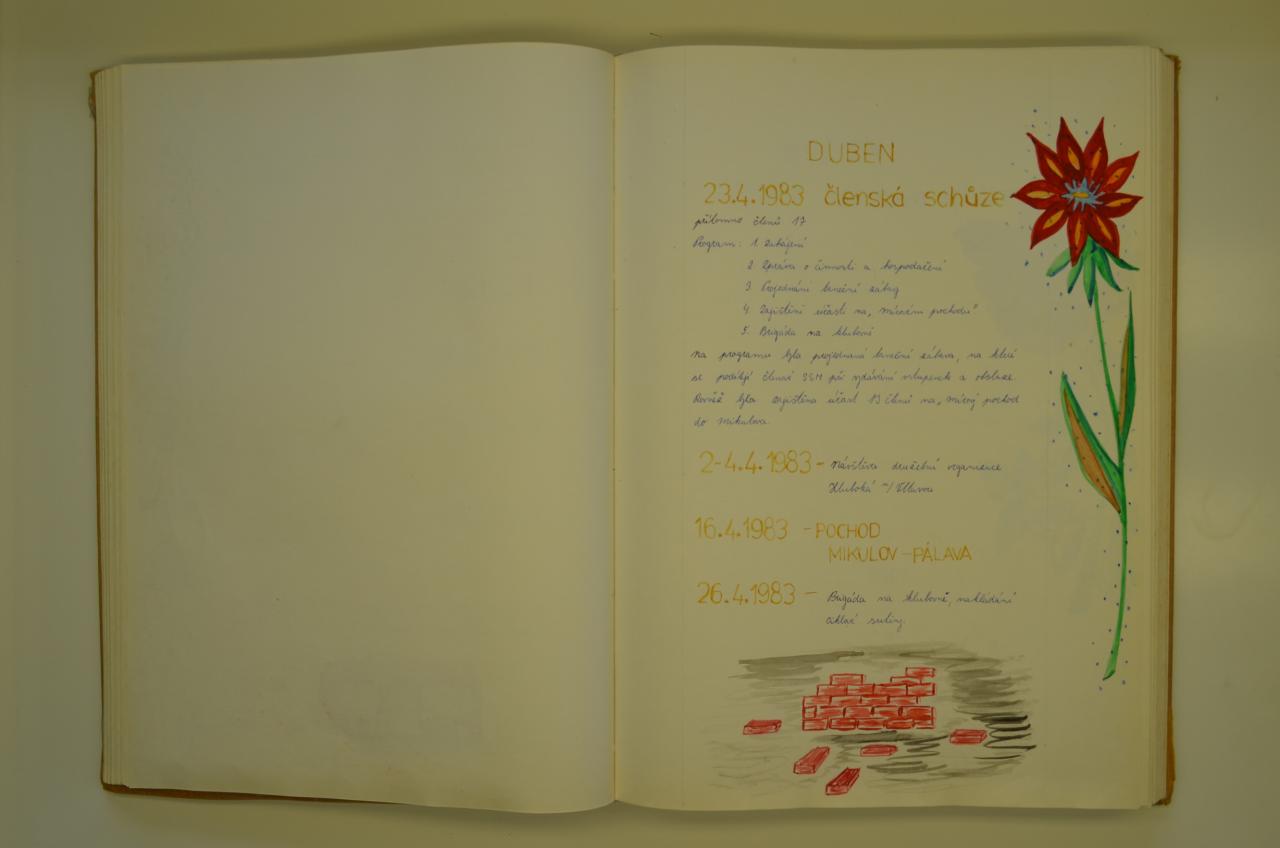 DUBEN
23.4.1983 členská schůze
přítomno členů 17
Program: 1. Zahájení
2. Zpráva o činnosti a hospodaření
3. Projednání taneční zábavy
4. Zajištění účasti na „Mírovém pochodu"
5. Brigáda na klubovni
Na programu byla projednaná taneční zábava, na které
se podílejí členové SSM při vydávání vstupenek a obsluze.
Rovněž byla zajištěna účast 13 členů na „Mírový pochod
do Mikulova.
2-4.4.1983 - Návštěva družební organizace
Hluboká n/Vltavou
16.4.1983 - POCHOD
MIKULOV - PÁLAVA
26.4.1983 - Brigáda na klubovně, nakládání
suti